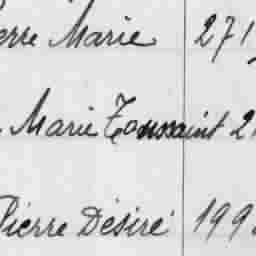 Pierre Marie 271
Marie Toussaint 2
Pierre Désiré 199